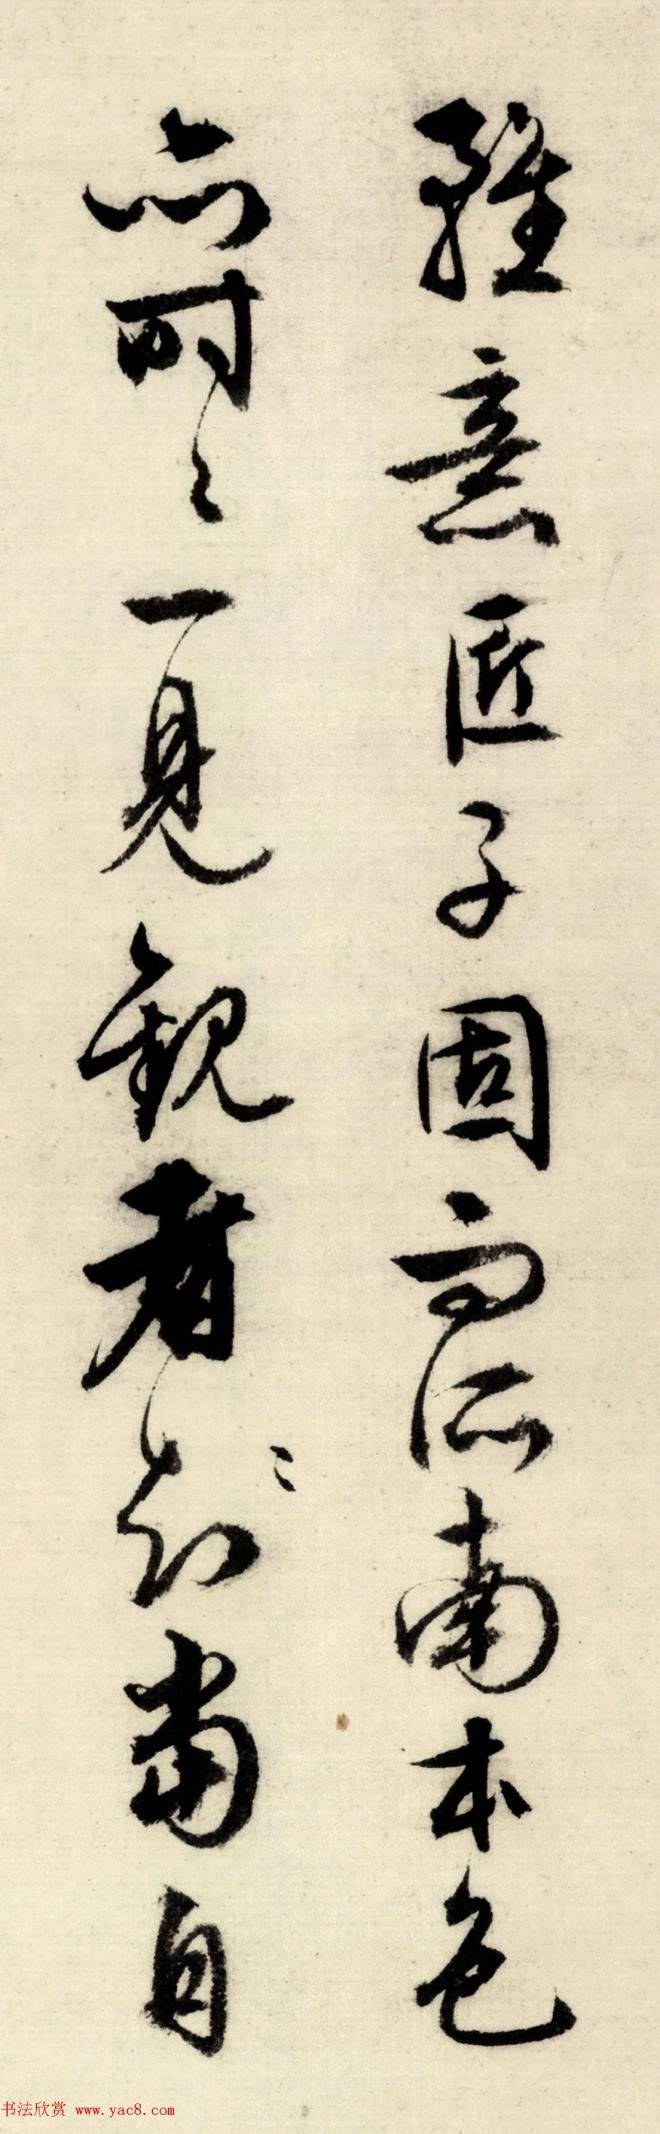 雖意匠子固而所南本色
亦時〻一見觀者當自
书法欣赏 www.yac8.com